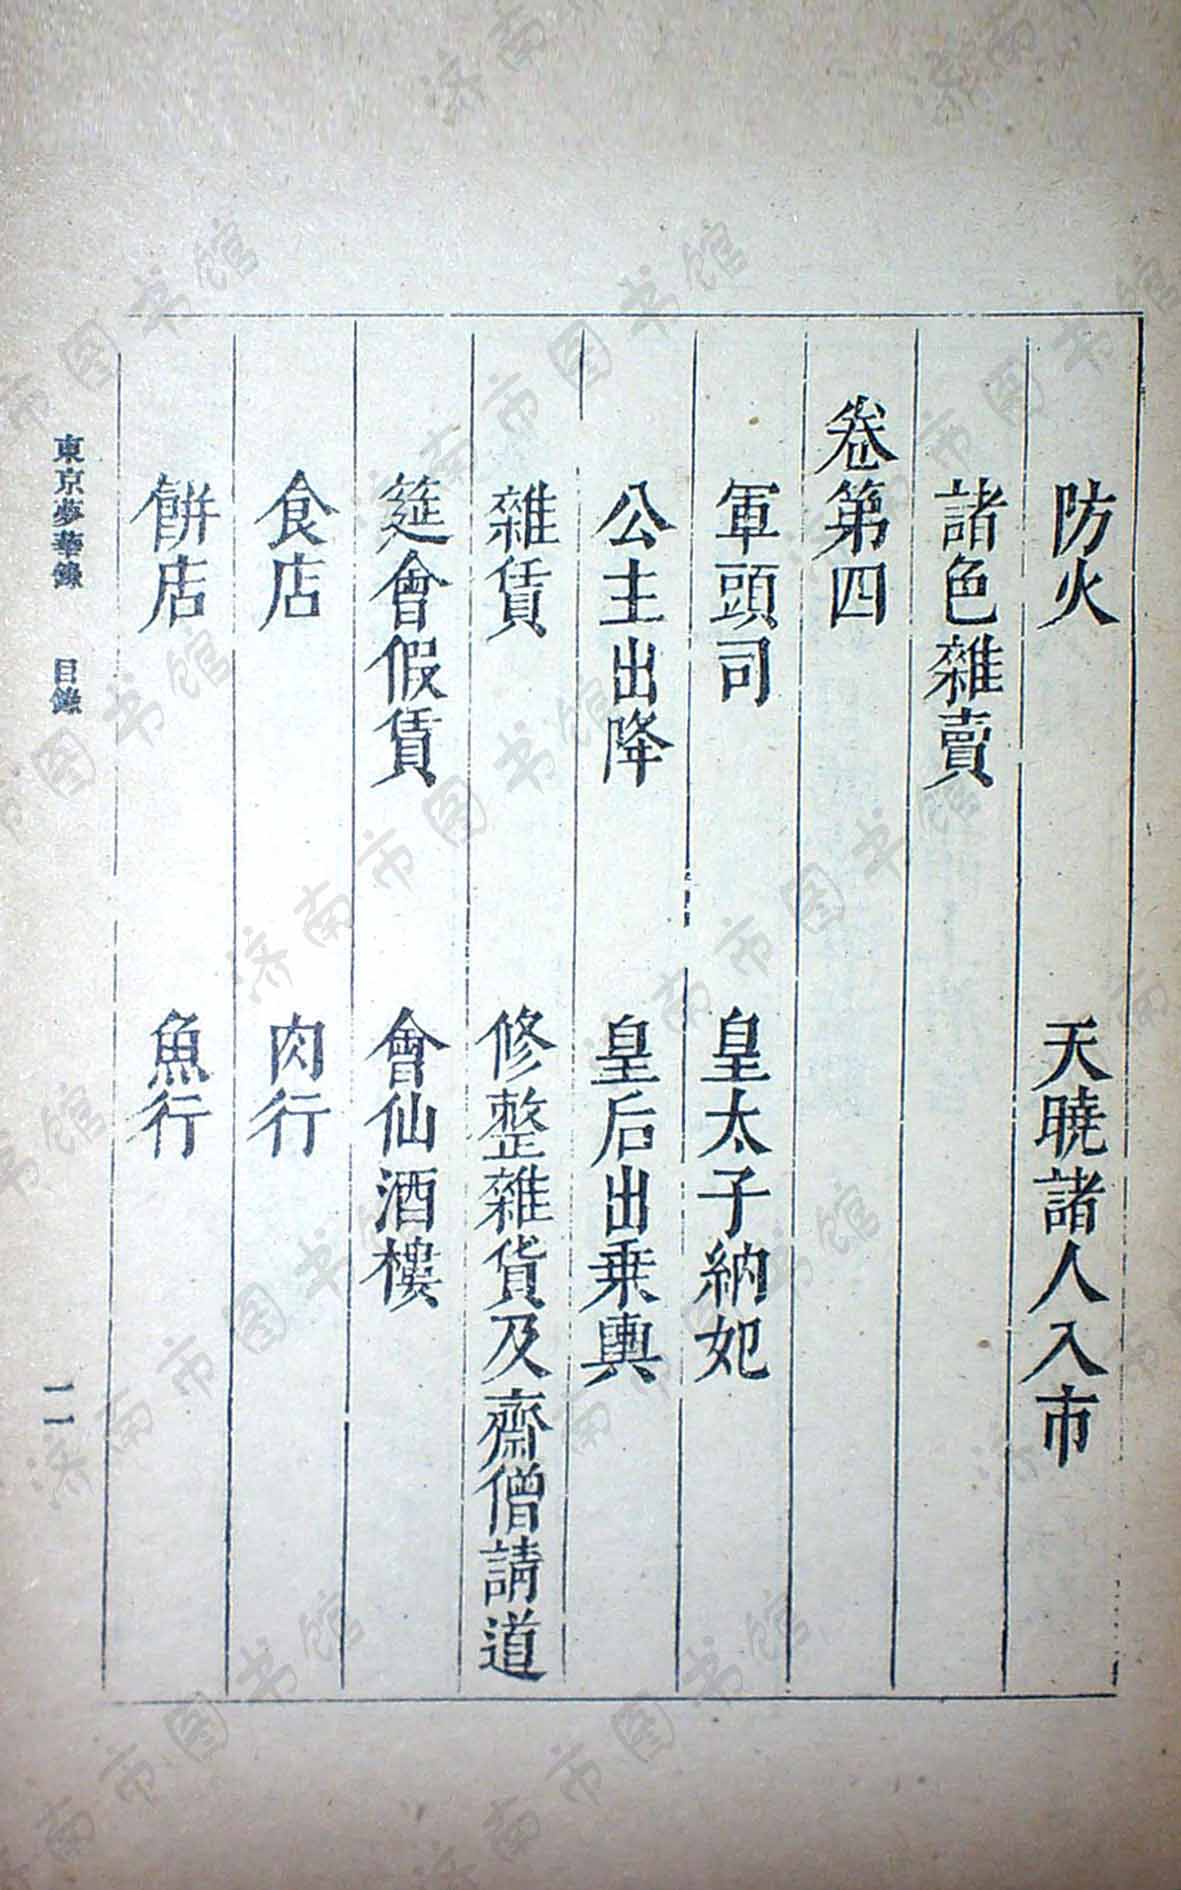 防火　天曉諸人入市
諸色雜賣
卷第四
軍頭司　皇太子納妃
公主出降　皇后出乗輿
雜賃　修整雜貨及齋僧請道
筵會假賃　會仙酒樓
食店　肉行
餅店　魚行
東京夢華錄　目錄　二
济南市图书馆